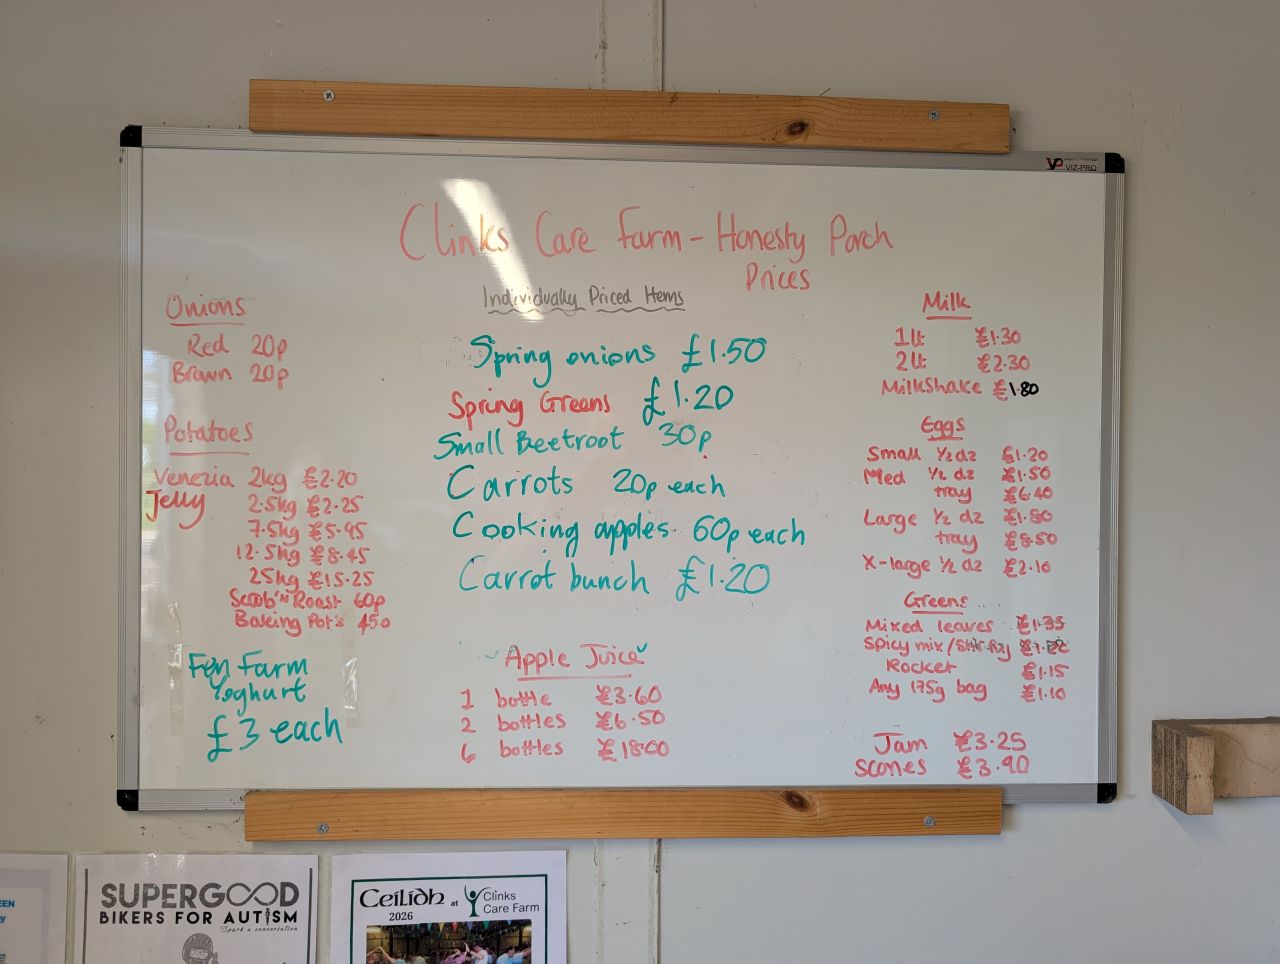 VP VIZ-PRO
Clinks Care Farm - Honesty Porch
Prices
Onions
Red 20p
Brown 20p
Potatoes
Venezia 2kg £2.20
Jelly 2.5kg £2.25
7.5kg £5.95
12.5kg £8.45
25kg £15.25
Scrub'N Roast 60p
Baking Pot's 45p
Fen Farm
Yoghurt
£3 each
Individually Priced Items
Spring onions £1.50
Spring Greens £1.20
Small Beetroot 30p
Carrots 20p each
Cooking apples 60p each
Carrot bunch £1.20
Apple Juice
1 bottle £3.60
2 bottles £6.50
6 bottles £18.00
Milk
1lt £1.30
2lt £2.30
Milkshake £1.80
Eggs
Small 1/2 dz £1.20
Med 1/2 dz £1.50
tray £6.40
Large 1/2 dz £1.80
tray £8.50
X-large 1/2 dz £2.10
Greens
Mixed leaves £1.35
Spicy mix/
Rocket £1.15
Any 175g bag £1.10
Jam £3.25
Scones £3.90
SUPERGOOD
BIKERS FOR AUTISM
Spark a conversation
Ceilidh at Clinks
2026 Care Farm